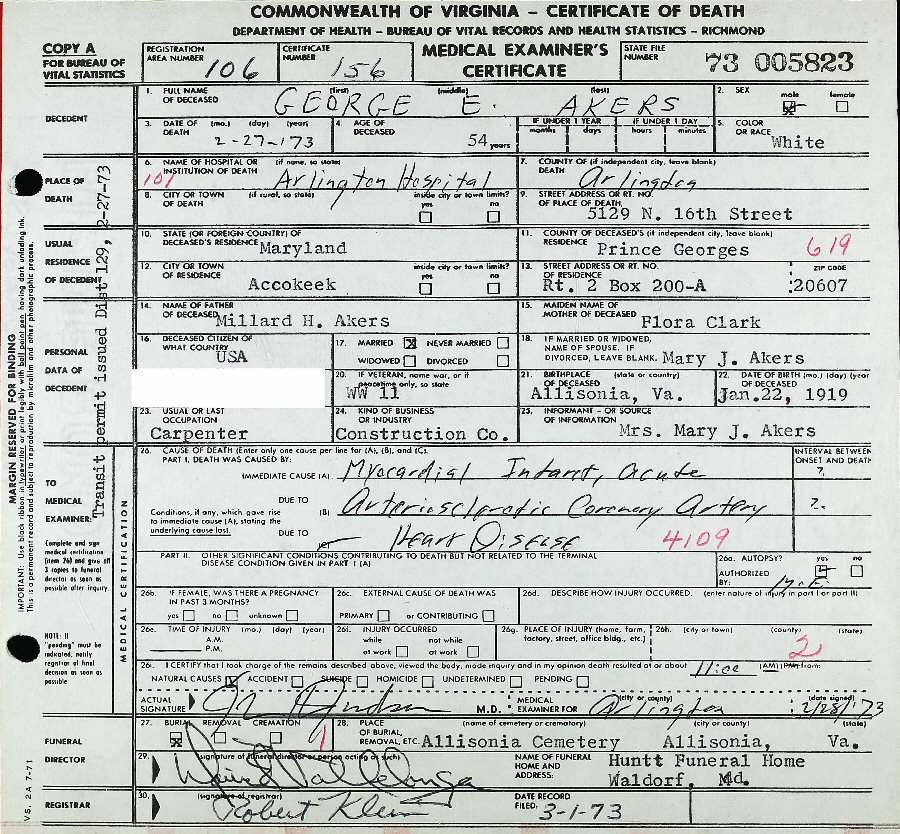 COMMONWEALTH OF VIRGINIA – CERTIFICATE OF DEATH
DEPARTMENT OF HEALTH – BUREAU OF VITAL RECORDS AND HEALTH STATISTICS – RICHMOND
COPY A
FOR BUREAU OF VITAL STATISTICS
REGISTRATION AREA NUMBER 106
CERTIFICATE NUMBER 156
MEDICAL EXAMINER'S CERTIFICATE
STATE FILE NUMBER 73 005823
DECEDENT
1. FULL NAME OF DECEASED (first) (middle) (last) GEORGE E. AKERS
2. SEX male female
3. DATE OF DEATH (mo.) (day) (year) 2-27-173
4. AGE OF DECEASED 54 years
IF UNDER 1 YEAR months days
IF UNDER 1 DAY hours minutes
5. COLOR OR RACE White
PLACE OF DEATH
6. NAME OF HOSPITAL OR INSTITUTION OF DEATH (if none, so state) 101 Arlington Hospital
7. COUNTY OF DEATH (if independent city, leave blank) Arlington
8. CITY OR TOWN OF DEATH (if rural, so state) inside city or town limits? yes no
9. STREET ADDRESS OR RT. NO. OF PLACE OF DEATH 5129 N. 16th Street
USUAL RESIDENCE OF DECEDENT
10. STATE (OR FOREIGN COUNTRY) OF DECEASED'S RESIDENCE Maryland
11. COUNTY OF DECEASED'S RESIDENCE (if independent city, leave blank) Prince Georges 619
12. CITY OR TOWN OF RESIDENCE Accokeek inside city or town limits? yes no
13. STREET ADDRESS OR RT. NO. OF RESIDENCE Rt. 2 Box 200-A ZIP CODE 20607
PERSONAL DATA OF DECEDENT
14. NAME OF FATHER OF DECEASED Millard H. Akers
15. MAIDEN NAME OF MOTHER OF DECEASED Flora Clark
16. DECEASED CITIZEN OF WHAT COUNTRY USA
17. MARRIED NEVER MARRIED WIDOWED DIVORCED
18. IF MARRIED OR WIDOWED, NAME OF SPOUSE. IF DIVORCED, LEAVE BLANK. Mary J. Akers
20. IF VETERAN, name war, or if peacetime only, so state WW 11
21. BIRTHPLACE OF DECEASED (state or country) Allisonia, Va.
22. DATE OF BIRTH (mo.) (day) (year OF DECEASED Jan.22, 1919
23. USUAL OR LAST OCCUPATION Carpenter
24. KIND OF BUSINESS OR INDUSTRY Construction Co.
25. INFORMANT – OR SOURCE OF INFORMATION Mrs. Mary J. Akers
TO MEDICAL EXAMINER:
Complete and sign medical certification (item 26) and give all 3 copies to funeral director as soon as possible after inquiry.
NOTE: If "pending" must be indicated, notify registrar of final decision as soon as possible.
MEDICAL CERTIFICATION
26. CAUSE OF DEATH (Enter only one cause per line for (A), (B), and (C).
PART I. DEATH WAS CAUSED BY:
INTERVAL BETWEEN ONSET AND DEATH
IMMEDIATE CAUSE (A) Myocardial Infarct, acute ?
Conditions, if any, which gave rise to immediate cause (A), stating the underlying cause last.
DUE TO (B) Arteriosclerotic Coronary Artery ?
DUE TO Heart Disease 4109
PART II. OTHER SIGNIFICANT CONDITIONS CONTRIBUTING TO DEATH BUT NOT RELATED TO THE TERMINAL DISEASE CONDITION GIVEN IN PART I (A)
26a. AUTOPSY? yes no
AUTHORIZED BY: M.E.
26b. IF FEMALE, WAS THERE A PREGNANCY IN PAST 3 MONTHS? yes no unknown
26c. EXTERNAL CAUSE OF DEATH WAS PRIMARY or CONTRIBUTING
26d. DESCRIBE HOW INJURY OCCURRED. (enter nature of injury in part I or part II)
26e. TIME OF INJURY (mo.) (day) (year) A.M. P.M.
26f. INJURY OCCURRED while at work not while at work
26g. PLACE OF INJURY (home, farm, factory, street, office bldg., etc.)
26h. (city or town) (county) (state) 2
26i. I CERTIFY that I took charge of the remains described above, viewed the body, made inquiry and in my opinion death resulted at or about 11:00 (AM) (PM) from:
NATURAL CAUSES ACCIDENT SUICIDE HOMICIDE UNDETERMINED PENDING
ACTUAL SIGNATURE Hudson M.D.
MEDICAL EXAMINER FOR (city or county) Arlington (date signed) 2/28/'73
FUNERAL DIRECTOR
27. BURIAL REMOVAL CREMATION
28. PLACE OF BURIAL, REMOVAL, ETC. (name of cemetery or crematory) (city or county) (state) Allisonia Cemetery Allisonia, Va.
29. (signature of funeral director or person acting as such)
NAME OF FUNERAL HOME AND ADDRESS: Huntt Funeral Home Waldorf, Md.
REGISTRAR
30. (signature of registrar) Robert Klein
DATE RECORD FILED: 3-1-73
MARGIN RESERVED FOR BINDING
IMPORTANT: Use black ribbon in typewriter or print legibly with ball point pen having dark unfading ink.
This is a permanent record and subject to reproduction by microfilm and other photographic process.
Transit permit issued Dist 129, 2-27-73
VS. 2A 7-71